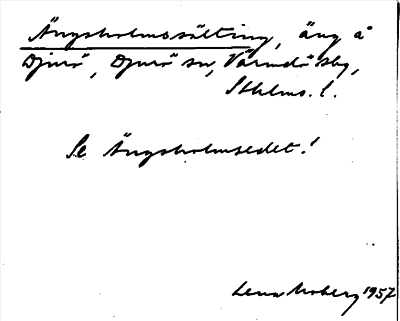 Ängsholmssälting, äng å
Djurö, Djurö sn, Värmdö skg,
Sthlms. l.
Se Ängsholmsedet!
Lena Moberg 1957